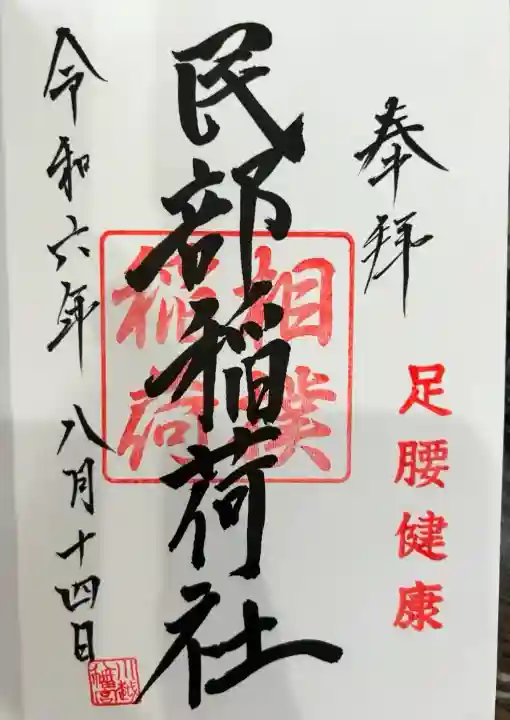 奉拝
足腰健康
民部稲荷社
相撲
稲荷
令和六年 八月十四日
川越
八幡宮